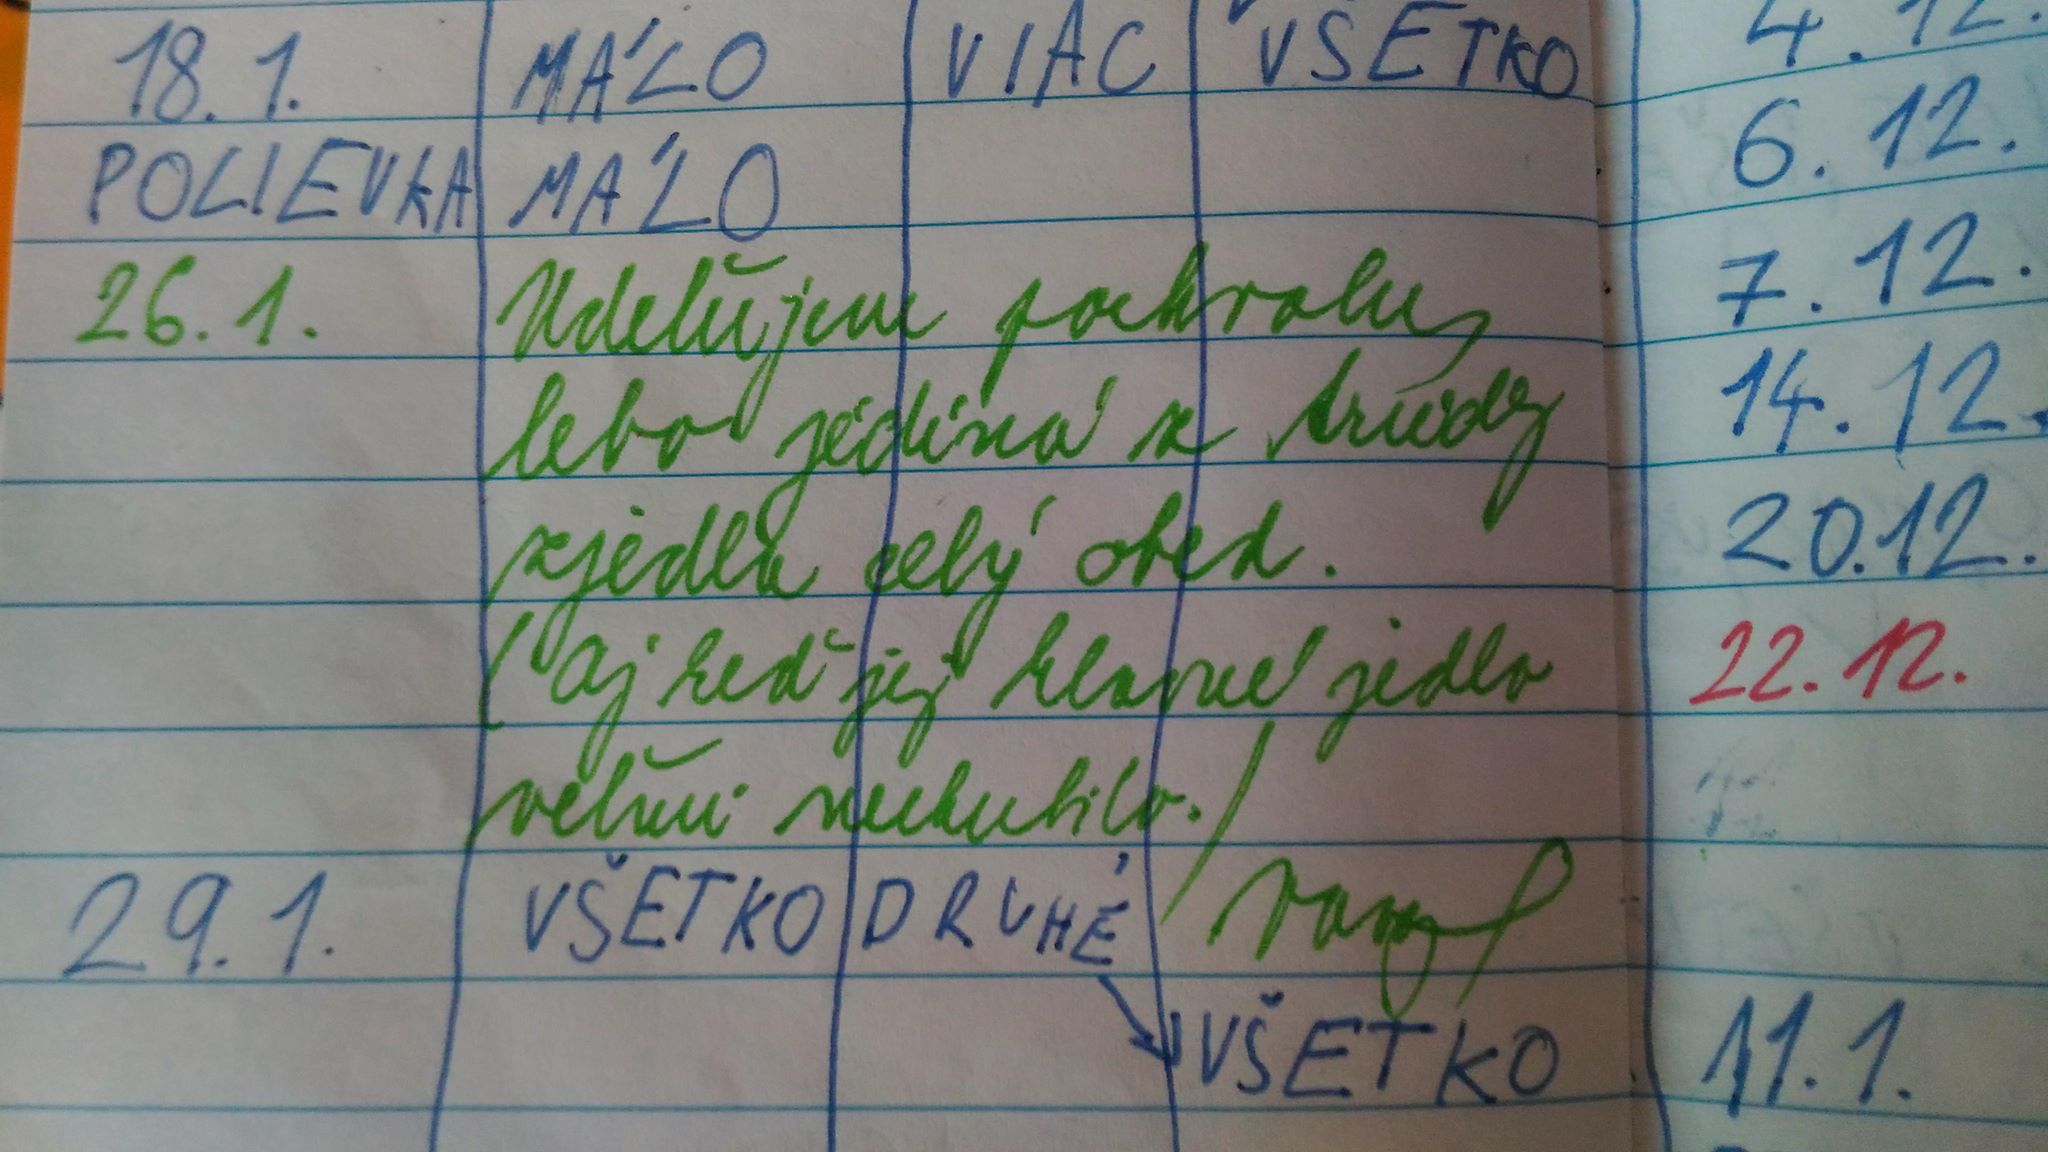 18.1. MÁLO VIAC VŠETKO
POLIEVKA MÁLO
26.1. Udeľujem pochvalu,
lebo jediná z triedy
zjedla celý obed.
(Aj keď jej hlavné jedlo
veľmi nechutilo.)
29.1. VŠETKO DRUHÉ
VŠETKO
4.12.
6.12.
7.12.
14.12.
20.12.
22.12.
11.1.